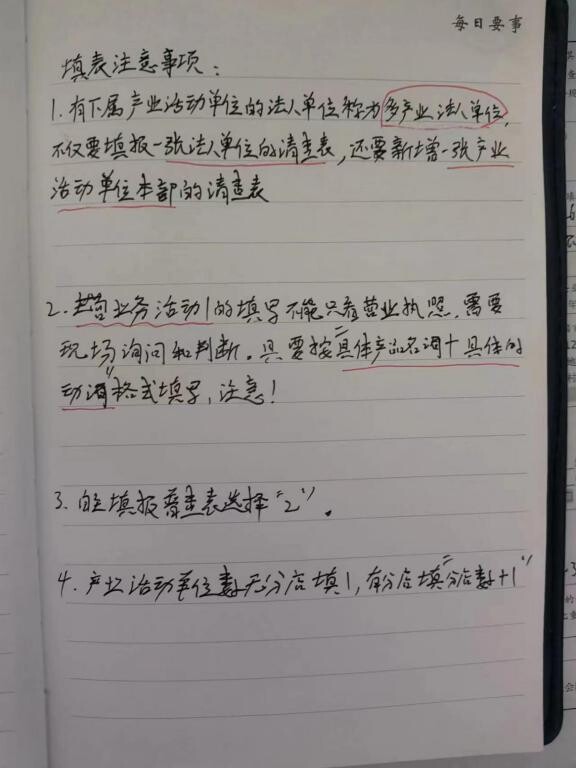 每日要事
填表注意事项：
1.有下属产业活动单位的法人单位称为多产业法人单位，
不仅要填报一张法人单位的清查表，还要新增一张产业
活动单位本部的清查表
2.主营业务活动1的填写不能只看营业执照，需要
现场询问和判断。且要按“具体产品名词+具体的
动词”格式填写，注意！
3.自主填报普查表选择“2”。
4.产业活动单位数无分店填1，有分店填“分店数+1”